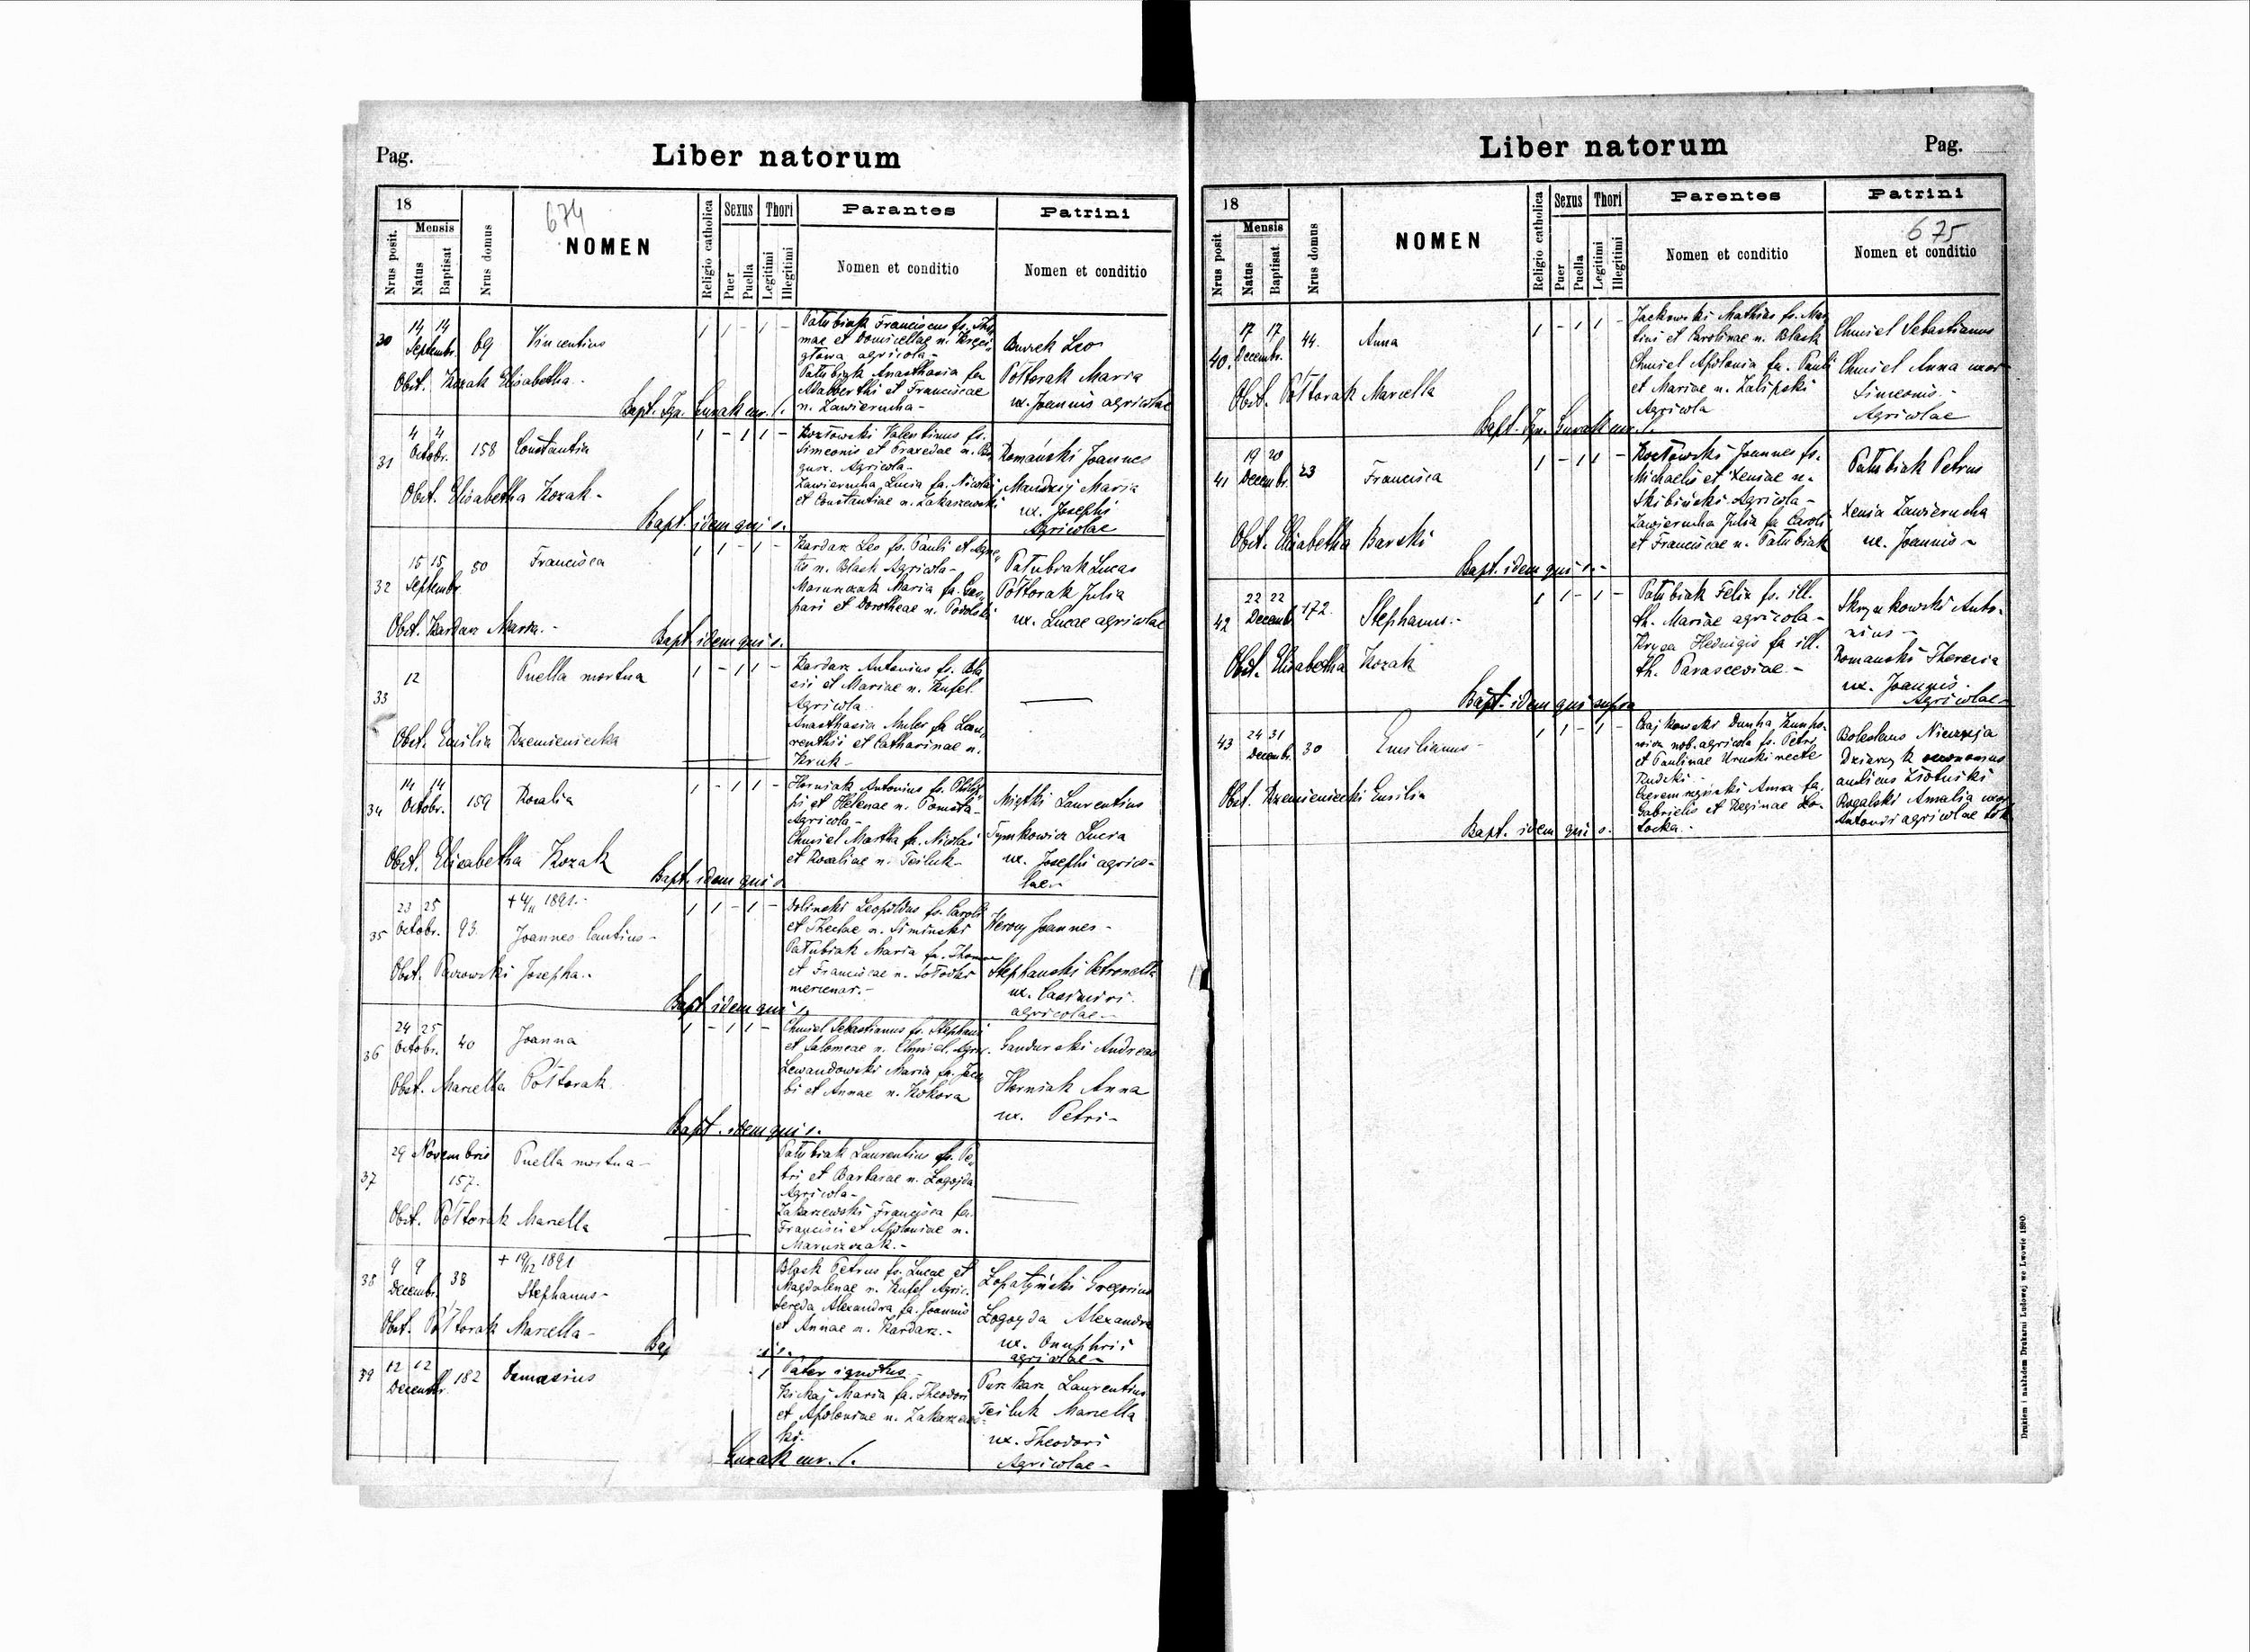 Pag.
Liber natorum
18
674
Nrus posit.
Mensis
Natus
Baptisat
Nrus domus
NOMEN
Religio catholica
Sexus
Puer
Puella
Thori
Legitimi
Illegitimi
Parantes
Nomen et conditio
Patrini
Nomen et conditio
30
14 14
Septembr.
69
Vincentius
1 1 - 1 -
Patubiak Franciscus fs. Tho
mae et Domicellae n.
agricola -
Patubiak Anasthasia fa
Adalberthi et Franciscae
n. Zawierucha -
Burek Leo
Półtorak Maria
ux. Joannis agricolae
Obst. Kozak Elisabetha.
Bapt. Ign. Gurak cur. l.
31
4 4
Octobr.
158
Constantia
1 - 1 1 -
Kozłowski Valentinus fs.
Simeonis et Praxedae n.
Agricola -
Zawierucha Lucia fa. Nicolai
et Constantiae n. Zakaszewski
Romański Joannes
Mandzij Maria
ux. Josephi
Agricolae
Obst. Elisabetha Kozak -
Bapt. idem qui s.
32
15 15
Septembr
50
Francisca
1 1 - 1 -
Kardaz Leo fs. Pauli et Agne
tis n. Blask Agricola -
Maruszczak Maria fa. Gas
pari et Dorotheae n. Podolski
Patubiak Lucas
Półtorak Julia
ux. Lucae agricolae
Obst. Kardaz Maria. -
Bapt. idem qui s.
33
12
Puella mortua
1 - 1 1 -
Kardaz Antonius fs. Bla
sii et Mariae n. Kufel.
Agricola.
Anasthasia Muler fa Lau
renthii et Catharinae n.
Kruk -
Obst. Emilia Dzemieniecka
34
14 14
Octobr.
159
Rozalia
1 - 1 1 -
Horniak Antonius fs. Philip
pi et Helenae n. Pomota -
Agricola -
Chmiel Martha fa. Nicolai
et Rozaliae n. Teiluk -
Miętki Laurentius
Tymkowicz Lucia
ux. Josephi agrico-
lae -
Obst. Elisabetha Kozak
Bapt. idem qui s
35
23 25
Octobr.
93.
+ 4/11 1891. -
Joannes Cantius -
1 1 - 1 -
Dolinski Leopoldus fs. Caroli
et Theclae n. Siminski
Patubiak Maria fa. Thomae
et Franciscae n.
mercenar. -
Joannes -
Stephanski Petronella
ux. Casimiri.
agricolae -
Obst. Josepha. -
Bapt. idem qui s.
36
24 25
Octobr.
40
Joanna
1 - 1 1 -
Chmiel Sebastianus fs. Stephani
et Salomeae n. Chmiel. Agric.
Lewandowski Maria fa. Jaco
bi et Annae n. Kokora
Gandurski Andreas
Horniak Anna
ux. Petri -
Obst. Marcella Półtorak
Bapt. idem qui s.
37
29 Novembris
157.
Puella mortua -
Patubiak Laurentius fs. Pe
tri et Barbarae n. Zogojda
Agricola -
Zakarzewski Francisca fa.
Francisci et Apoloniae n.
Maruszczak. -
Obst. Półtorak Marcella
38
9 9
Decembr.
38
+ 19/12 1891
Stephanus -
Blask Petrus fs. Lucae et
Magdalenae n. Kufel Agric.
Sereda Alexandra fa. Joannis
et Annae n. Kardaz. -
Łopatyński Gregorius
Zogoyda Alexandra
ux. Onuphrii
agricolae -
Obst. Półtorak Marcella -
Bap
39
12 12
Decembr.
182
Damasius
1
Pater ignotus -
Kickaj Maria fa. Theodori
et Apoloniae n. Zakarzews
ki.
Puzkar Laurentius
Teiluk Marcella
ux. Theodori
Agricolae -
Gurak cur. l.
Liber natorum
Pag.
18
Nrus posit
Mensis
Natus
Baptisat.
Nrus domus
NOMEN
Religio catholica
Sexus
Puer
Puella
Thori
Legitimi
Illegitimi
Parentes
Nomen et conditio
Patrini
675
Nomen et conditio
40.
17 17
Decembr.
44.
Anna
1 - 1 1 -
Jackowski Mathias fs. Mar
tini et Carolinae n. Blask
Chmiel Apolonia fa. Pauli
et Mariae n. Zalipski
Agricola
Chmiel Sebastianus
Chmiel Anna uxor
Simeonis -
Agricolae
Obst. Półtorak Marcella
Bapt. Ign. Gurak cur. l.
41
19 20
Decembr.
23
Francisca
1 - 1 1 -
Kozłowski Joannes fs.
Michaelis et Xeniae n.
Skibiński Agricola -
Zawierucha Julia fa Caroli
et Franciscae n. Patubiak
Patubiak Petrus
Xenia Zawierucha
ux. Joannis -
Obst. Elisabetha Barski
Bapt. idem qui s. -
42
22 22
Decemb.
172.
Stephanus. -
1 1 - 1 -
Patubiak Felix fs. ill.
th. Mariae agricola -
Hedwigis fa ill.
th. Parasceviae. -
Skrynkowski Anto-
nius -
Romanski Theresia
ux. Joannis.
Agricolae -
Obst. Elisabetha Kozak
Bapt. idem qui supra
43
24 31
Decembr.
30
Emilianus -
1 1 - 1 -
nob. agricola fs. Petri
et Paulinae Uruski recte
Rudski -
Anna fa.
Gabrielis et Reginae Zo-
tocka. -
Boleslaus Nieczuja
Dzierzek oeconomus
aulicus
Rogalski Amalia uxor
Antonii agricolae
Obst. Dzemieniecki Emilia
Bapt. idem qui s.
Drukiem i nakładem Drukarni Ludowej we Lwowie 1890.